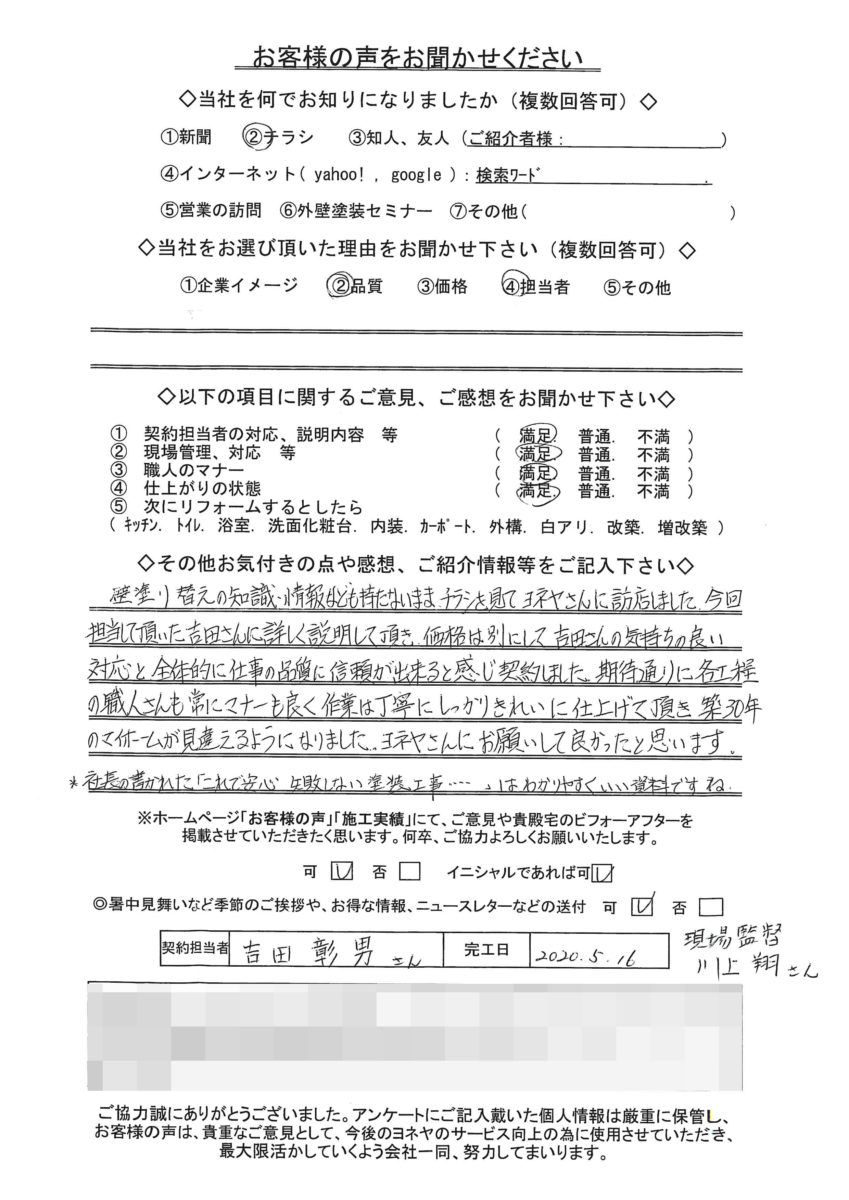 お客様の声をお聞かせください
◇当社を何でお知りになりましたか（複数回答可）◇
①新聞　②チラシ　③知人、友人（ご紹介者様：　　　）
④インターネット( yahoo! , google )：検索ﾜｰﾄﾞ　　　.
⑤営業の訪問　⑥外壁塗装セミナー　⑦その他(　　　)
◇当社をお選び頂いた理由をお聞かせ下さい（複数回答可）◇
①企業イメージ　②品質　③価格　④担当者　⑤その他
◇以下の項目に関するご意見、ご感想をお聞かせ下さい◇
①　契約担当者の対応、説明内容　等　（　満足.　普通.　不満　）
②　現場管理、対応　等　（　満足.　普通.　不満　）
③　職人のマナー　（　満足.　普通.　不満　）
④　仕上がりの状態　（　満足.　普通.　不満　）
⑤　次にリフォームするとしたら
（ ｷｯﾁﾝ. ﾄｲﾚ. 浴室. 洗面化粧台. 内装. ｶｰﾎﾟｰﾄ. 外構. 白アリ. 改築. 増改築 ）
◇その他お気付きの点や感想、ご紹介情報等をご記入下さい◇
壁塗り替えの知識、情報なども持たないまま、チラシを見てヨネヤさんに訪店しました。今回
担当して頂いた吉田さんに詳しく説明して頂き、価格は別にして吉田さんの気持ちの良い
対応と全体的に仕事の品質に信頼が出来ると感じ契約しました。期待通りに各工程
の職人さんも常にマナーも良く作業は丁寧にしっかりきれいに仕上げて頂き築30年
のマイホームが見違えるようになりました。ヨネヤさんにお願いして良かったと思います。
*社長の書かれた「これで安心 失敗しない塗装工事……」はわかりやすくいい資料ですね。
※ホームページ「お客様の声」「施工実績」にて、ご意見や貴殿宅のビフォーアフターを
掲載させていただきたく思います。何卒、ご協力よろしくお願いいたします。
可　否　イニシャルであれば可
◎暑中見舞いなど季節のご挨拶や、お得な情報、ニュースレターなどの送付　可　否
契約担当者　吉田 彰男さん　完工日　2020.5.16
現場監督
川上 翔さん
ご協力誠にありがとうございました。アンケートにご記入戴いた個人情報は厳重に保管し、
お客様の声は、貴重なご意見として、今後のヨネヤのサービス向上の為に使用させていただき、
最大限活かしていくよう会社一同、努力してまいります。